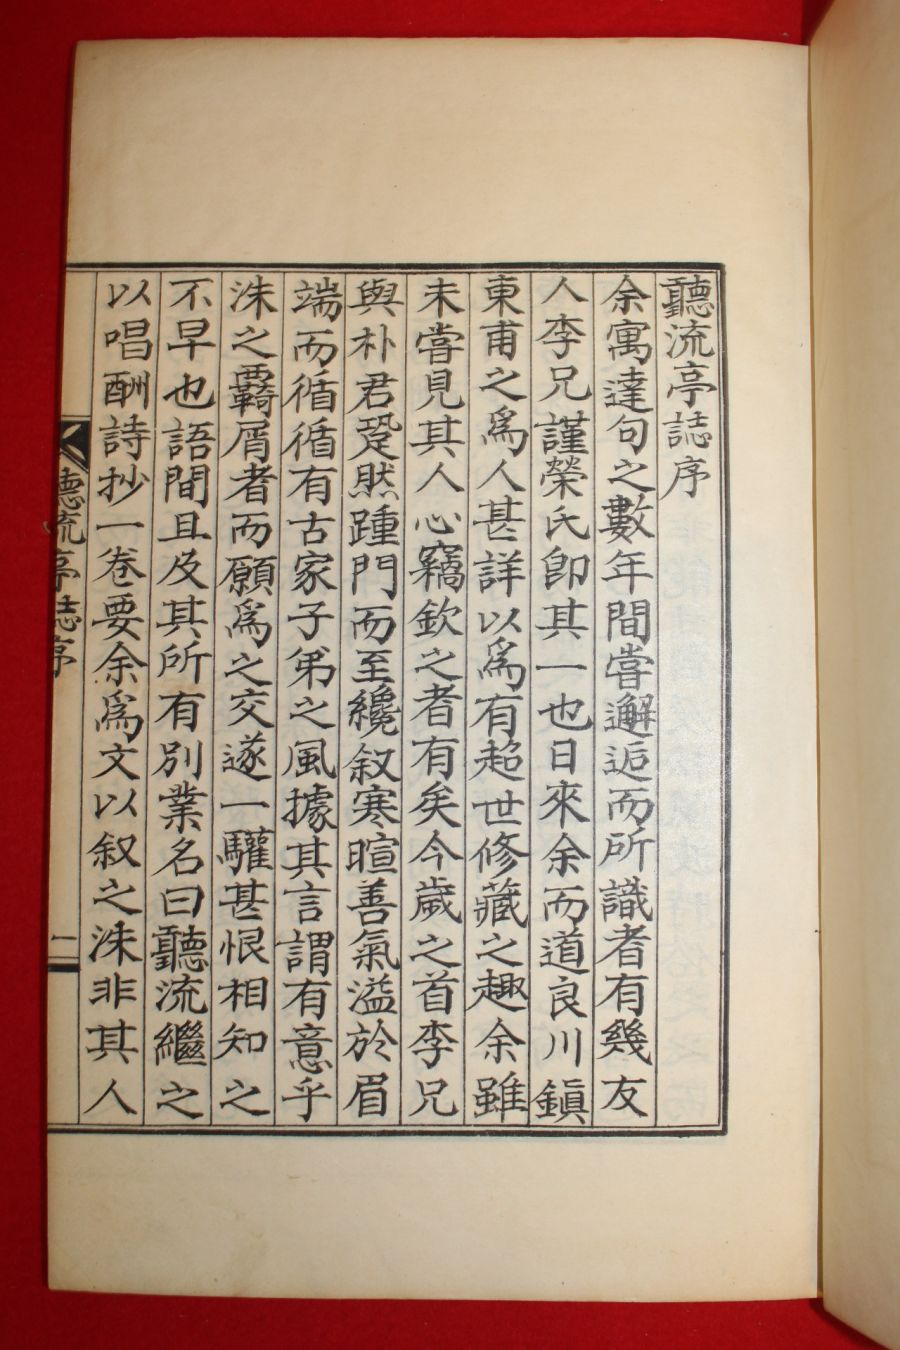 聽流亭誌序
余寓達句之數年間嘗邂逅而所識者有幾友
人李兄謹榮氏卽其一也日來余而道良川鎭
東甫之爲人甚詳以爲有超世修藏之趣余雖
未嘗見其人心竊欽之者有矣今歲之首李兄
與朴君跫然踵門而至纔叙寒暄善氣溢於眉
端而循循有古家子弟之風據其言謂有意乎
洙之覊屑者而願爲之交遂一驩甚恨相知之
不早也語間且及其所有別業名曰聽流繼之
以唱酬詩抄一卷要余爲文以叙之洙非其人
聽流亭誌序
一